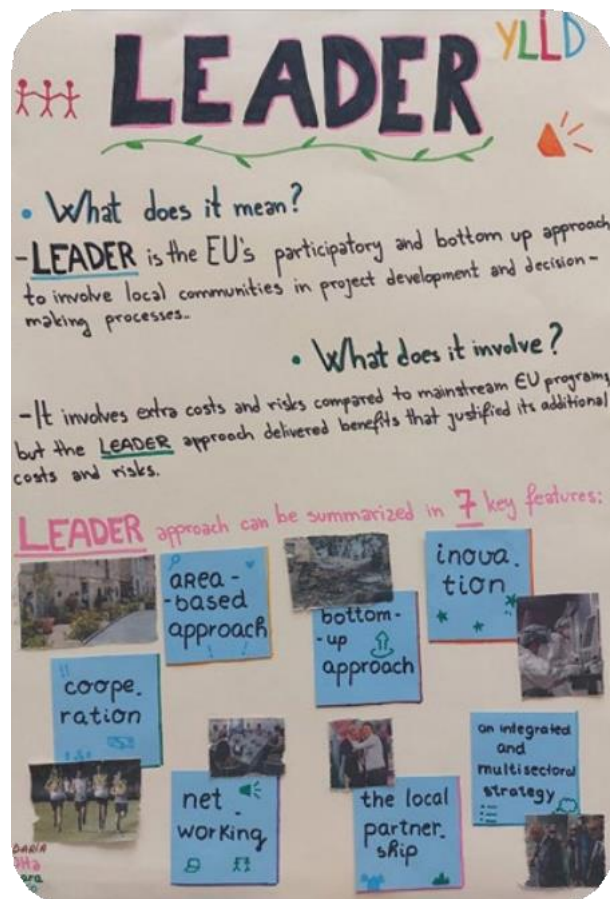 LEADER
YLLD
• What does it mean?
-LEADER is the EU's participatory and bottom up approach
to involve local communities in project development and decision-
making processes..
• What does it involve?
-It involves extra costs and risks compared to mainstream EU programs
but the LEADER approach delivered benefits that justified its additional
costs and risks.
LEADER approach can be summarized in 7 key features:
area-
-based
approach
bottom-
-up
approach
inova.
tion
coope.
ration
net-
working
the local
partner.
ship
an integrated
and
multisectoral
strategy
DARIA